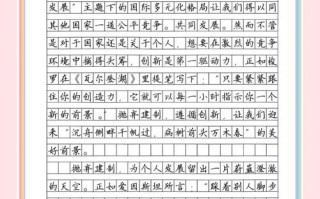 发展”主题下的国际多元化格局让我们得以同
其他国家一道公平竞争。共同发展。然而不管
是对于国家还是关于个人，想要在激烈的竞争
环境中摘得头筹，创新是第一驱动力。正如梭
罗在《瓦尔登湖》里提笔写下：“只要紧紧跟
住你的创造力，它就可以每一小时指示你一个
新的前景。”抛弃建制，创新开放，让我们迎
来“沉舟侧畔千帆过，病树前头万木春”的美
好前景。
抛弃建制，为个人发展留出一片蔚蓝澄澈
的天空。正如爱因斯坦所言：“踩着别人脚步